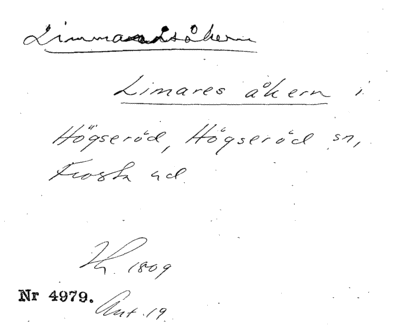 Limmandsåkern
Limares åkern i
Högseröd, Högseröd sn,
Frosta hd
1809
Nr 4979.
Ant. 19